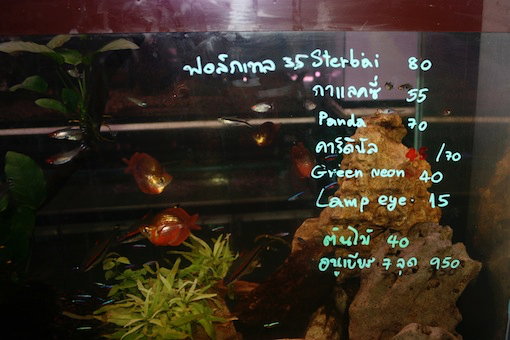 ฟอล์กเทล 35 Sterbai 80
กาแลคซี่ 55
Panda 70
คาร์ดินัล /70
Green neon 40
Lamp eye. 15
ต้นไม้ 40
อนูเบียส 7 จุด 950